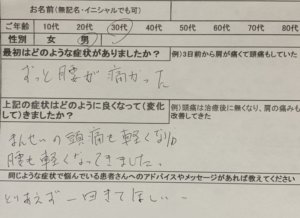 お名前(無記名・イニシャルでも可)
ご年齢 10代 20代 30代 40代 50代 60代 70代 80代
性別 女 男
最初はどのような症状がありましたか? 例)3日前から肩が痛くて頭痛もしていた
ずっと腰が痛かった
上記の症状はどのように良くなって(変化して)きましたか? 例)頭痛は治療後に無くなり、肩の痛みも改善してきた
まんせいの頭痛も軽くなり
腰も軽くなってきました。
同じような症状で悩んでいる患者さんへのアドバイスやメッセージがあれば教えてください
とりあえず一回きてほしい